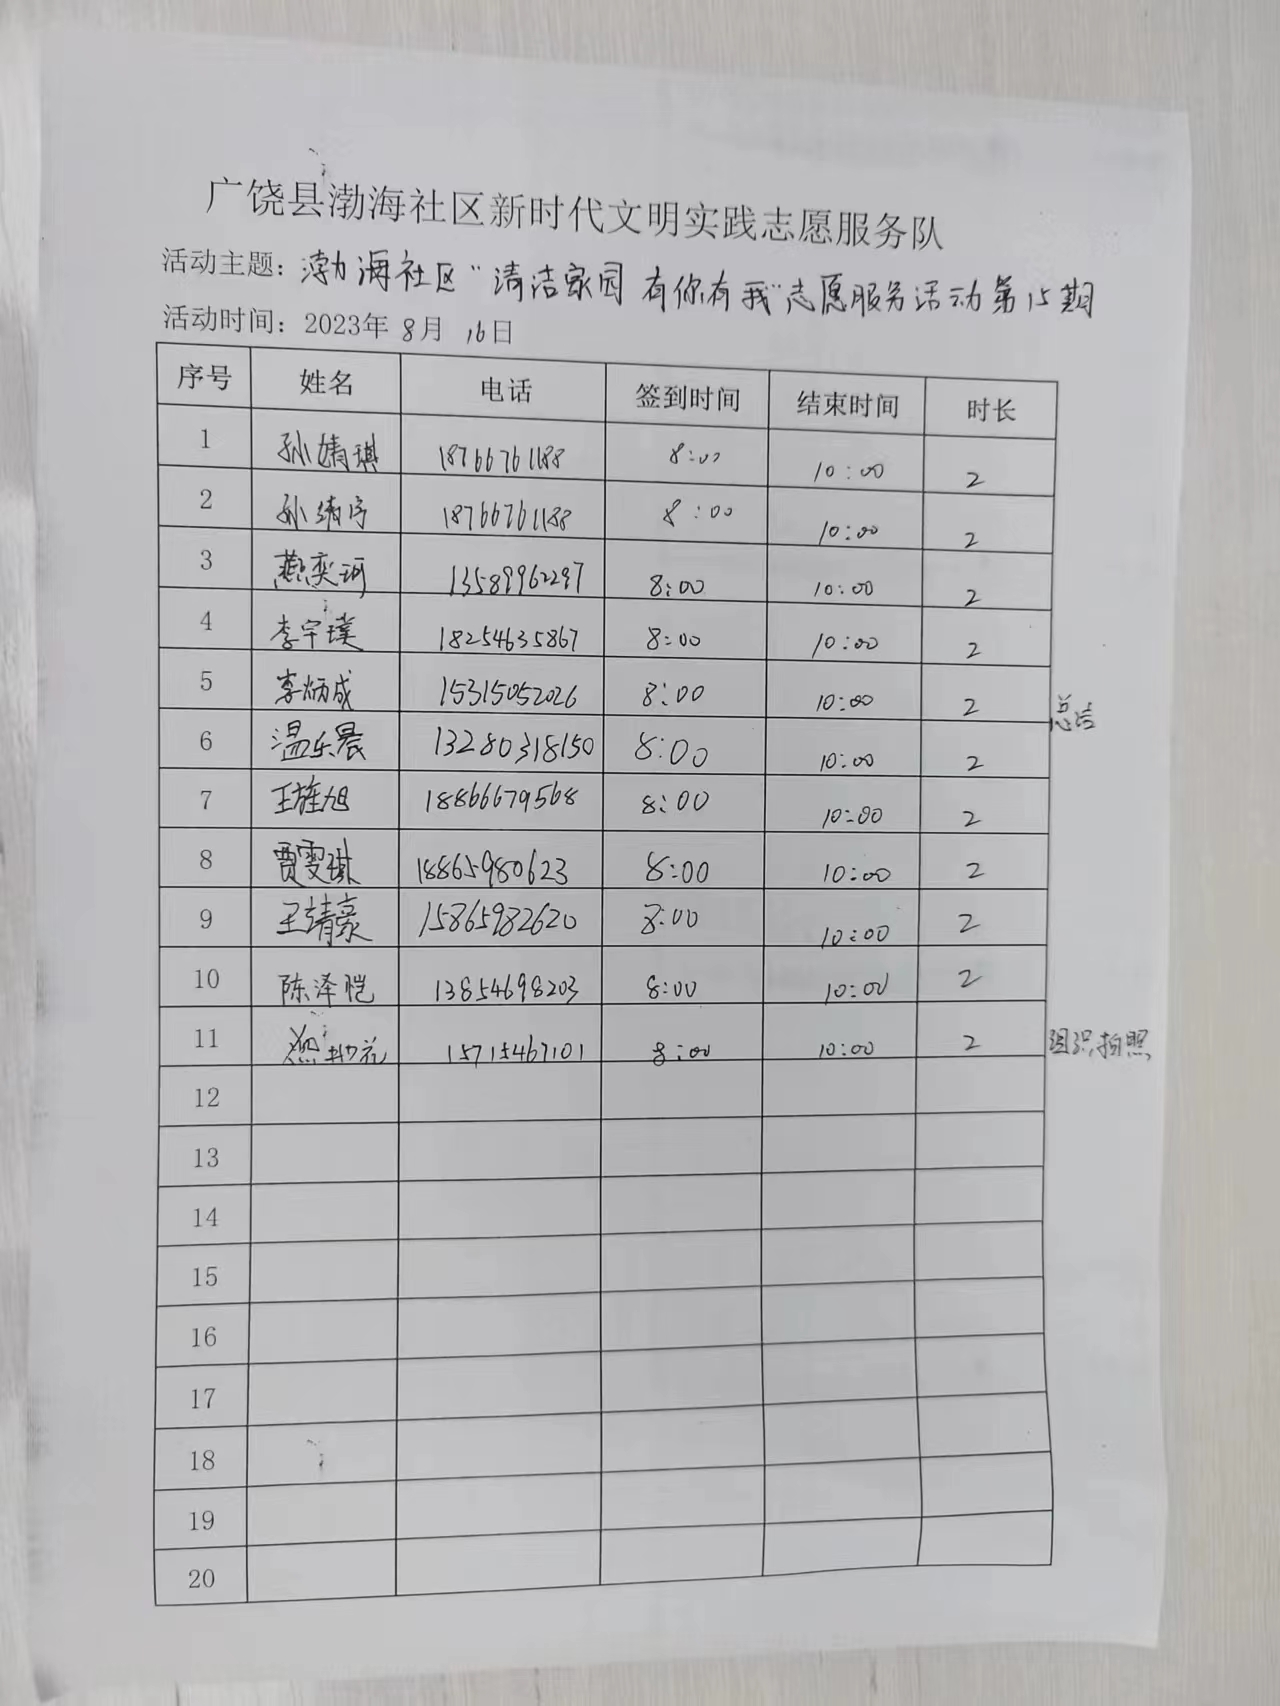 广饶县渤海社区新时代文明实践志愿服务队
活动主题：渤海社区"清洁家园 有你有我"志愿服务活动第15期
活动时间：2023年 8月 16日
序号 姓名 电话 签到时间 结束时间 时长
1 孙婧琪 18766761188 8:00 10:00 2
2 孙靖 18766761188 8:00 10:00 2
3 燕奕珂 13589962297 8:00 10:00 2
4 李宇璞 18254635867 8:00 10:00 2
5 李炳成 15315052026 8:00 10:00 2 总结
6 温乐晨 13280318150 8:00 10:00 2
7 王旌旭 18866679568 8:00 10:00 2
8 贾雯琳 18865980623 8:00 10:00 2
9 王靖豪 15865982620 8:00 10:00 2
10 陈泽恺 13854698203 8:00 10:00 2
11 15715467101 8:00 10:00 2 组织,拍照
12
13
14
15
16
17
18
19
20